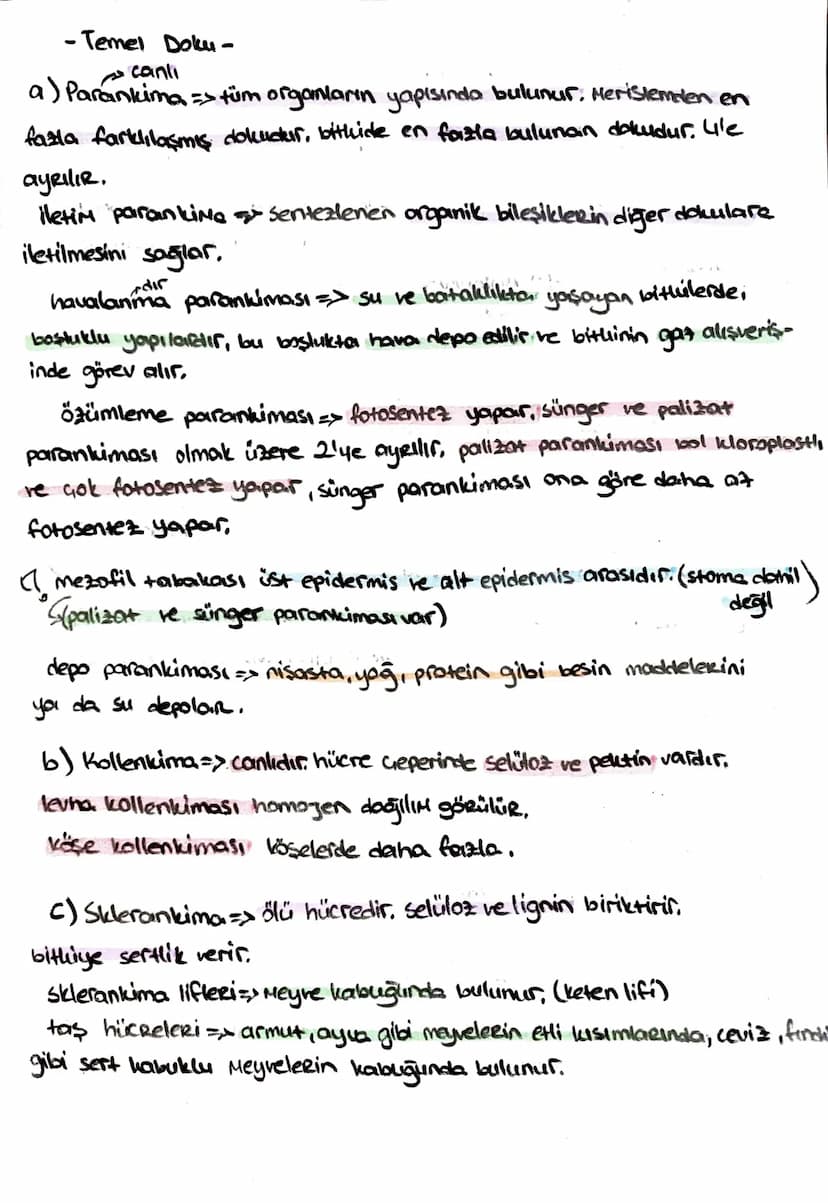 - Temel Doku -
→ canlı
a) Parankima => tüm organların yapısında bulunur. Meristemden en
fazla farklılaşmış dokudur, bitkide en fazla bulunan dokudur. 4'e
ayrılır.
iletim parankima => sentezlenen organik bileşiklerin diğer dokulara
iletilmesini sağlar.
havalanma parankiması => su ve bataklıkta yaşayan bitkilerde,
dır
boşluklu yapılardır, bu boşlukta hava depo edilir ve bitkinin gaz alışveriş-
inde görev alır.
özümleme parankiması => fotosentez yapar, sünger ve palizat
parankiması olmak üzere 2'ye ayrılır, palizat parankiması bol kloroplastlı
ve çok fotosentez yapar, sünger parankiması ona göre daha az
fotosentez yapar.
mezofil tabakası üst epidermis ve alt epidermis arasıdır. (stoma dahil
değil)
(palizat ve sünger parankiması var)
depo parankiması => nişasta, yağ, protein gibi besin maddelerini
ya da su depolar.
b) Kollenkima => canlıdır. hücre çeperinde selüloz ve pektin vardır.
levha kollenkiması homojen dağılım görülür,
köşe kollenkiması köşelerde daha fazla.
c) Sklerankima => ölü hücredir. selüloz ve lignin biriktirir.
bitkiye sertlik verir.
sklerankima lifleri => meyve kabuğunda bulunur, (keten lifi)
taş hücreleri => armut, ayva gibi meyvelerin etli kısımlarında, ceviz,
gibi sert kabuklu meyvelerin kabuğunda bulunur.